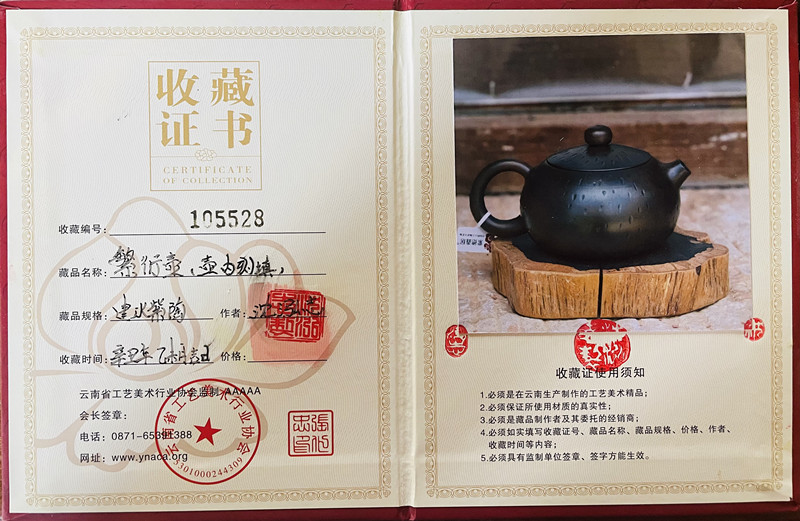 收藏
证书
CERTIFICATE
OF COLLECTION
收藏编号：105528
藏品名称：繁衍壶，壶内刻填，
藏品规格：建水紫陶 作者：
收藏时间：辛丑年 价格：
云南省工艺美术行业协会监制 AAAAA
会长签章：
电话：0871-65391388
网址：www.ynaca.org
云南省工艺美术行业协会
5301000244309
收藏证使用须知
1.必须是在云南生产制作的工艺美术精品；
2.必须保证所使用材质的真实性；
3.必须是藏品制作者及其委托的经销商；
4.必须如实填写收藏证号、藏品名称、藏品规格、价格、作者、
收藏时间等内容；
5.必须具有监制单位签章、签字方能生效。